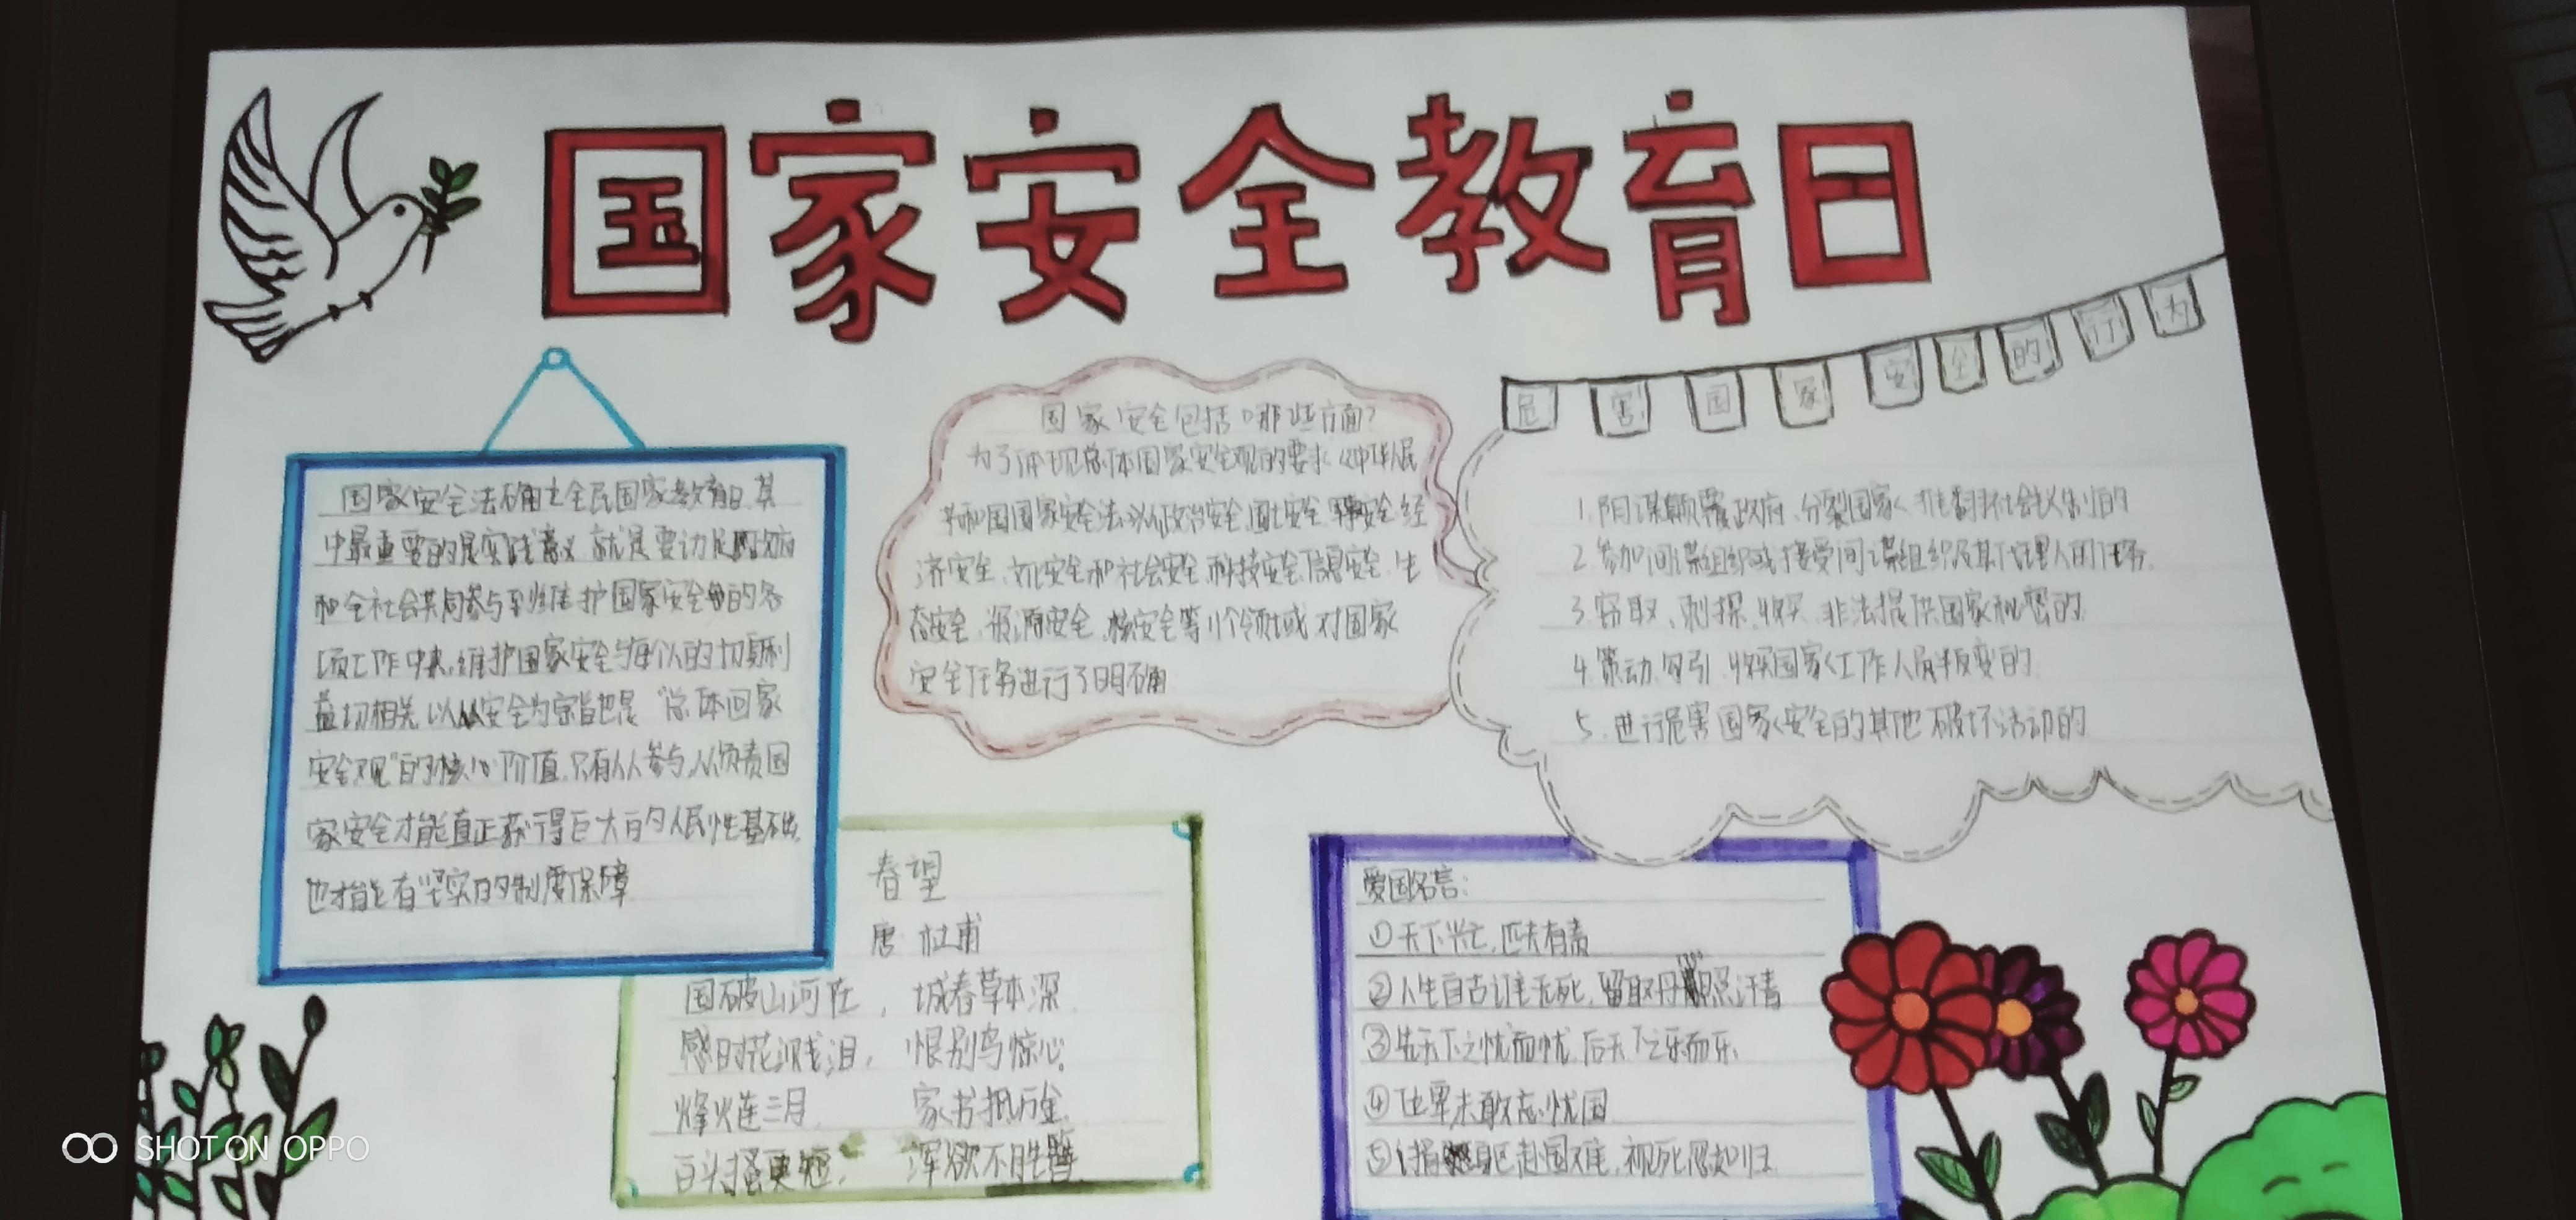 国家安全教育日
国家安全法确立全民国家教育日,其
中最重要的是实践意义,就是要动员政府
和全社会共同参与到维护国家安全的各
项工作中来,维护国家安全与每个人的切身利
益切相关,以人民安全为宗旨也是“总体回家
安全观”的核心价值,只有人人参与,人人负责国
家安全才能真正获得巨大的人民性基础,
也才能有坚实的制度保障
国家安全包括哪些方面?
为了体现总体国家安全观的要求《中华人民
共和国国家安全法》从政治安全,国土安全,军事安全,经
济安全,文化安全和社会安全,科技安全,信息安全,生
态安全,资源安全,核安全等11个领域对国家
安全任务进行了明确
危害国家安全的行为
1.阴谋颠覆政府、分裂国家、推翻社会主义制的
2.参加间谍组织或接受间谍组织及其代理人的任务.
3.窃取、刺探、收买、非法提供国家机密的.
4.策动,勾引,收买国家工作人员叛变的.
5.进行危害国家安全的其他破坏活动的.
春望
唐 杜甫
国破山河在, 城春草本深.
感时花溅泪, 恨别鸟惊心.
烽火连三月. 家书抵万金.
白头搔更短, 浑欲不胜簪.
爱国名言:
①天下兴亡,匹夫有责
②人生自古谁无死,留取丹心照汗青
③先天下之忧而忧,后天下之乐而乐.
④位卑未敢忘忧国.
⑤捐躯赴国难,视死忽如归.
SHOT ON OPPO